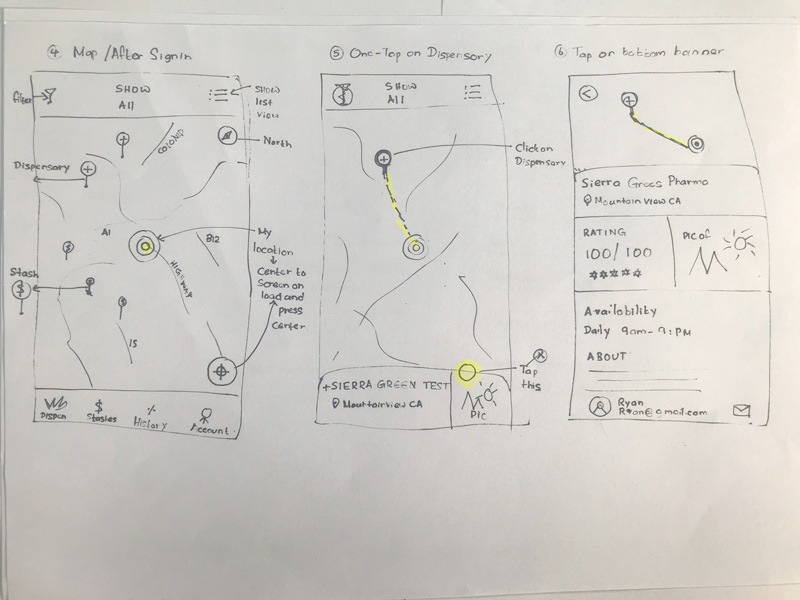 ④ Map / After Signin
filter
SHOW
All
SHOW
list
view
North
COLONID
Dispensary
A1
B12
My
location
Center to
Screen on
load and
press
center
Stash
$
15
$
Stashes
History
Account
⑤ One-Tap on Dispensory
SHOW
All
Click on
Dispensary
Tap
this
+SIERRA GREEN TEST
Mountainview CA
PIC
⑥ Tap on bottom banner
<
Sierra Grees Pharmo
Mountain view CA
RATING
100/100
PIC of
Availability
Daily 9am - 9:PM
ABOUT
Ryan
Ryan@gmail.com